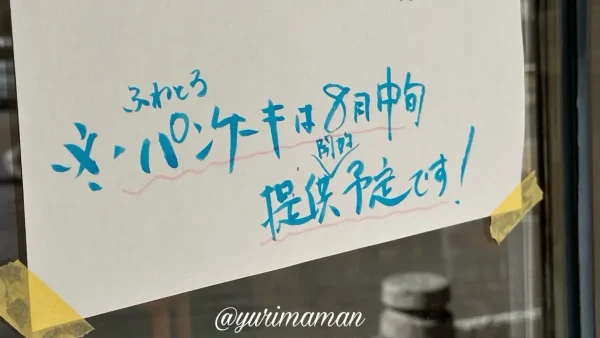 ふわとろ
※・パンケーキは8月中旬
提供予定です!
@yurimaman